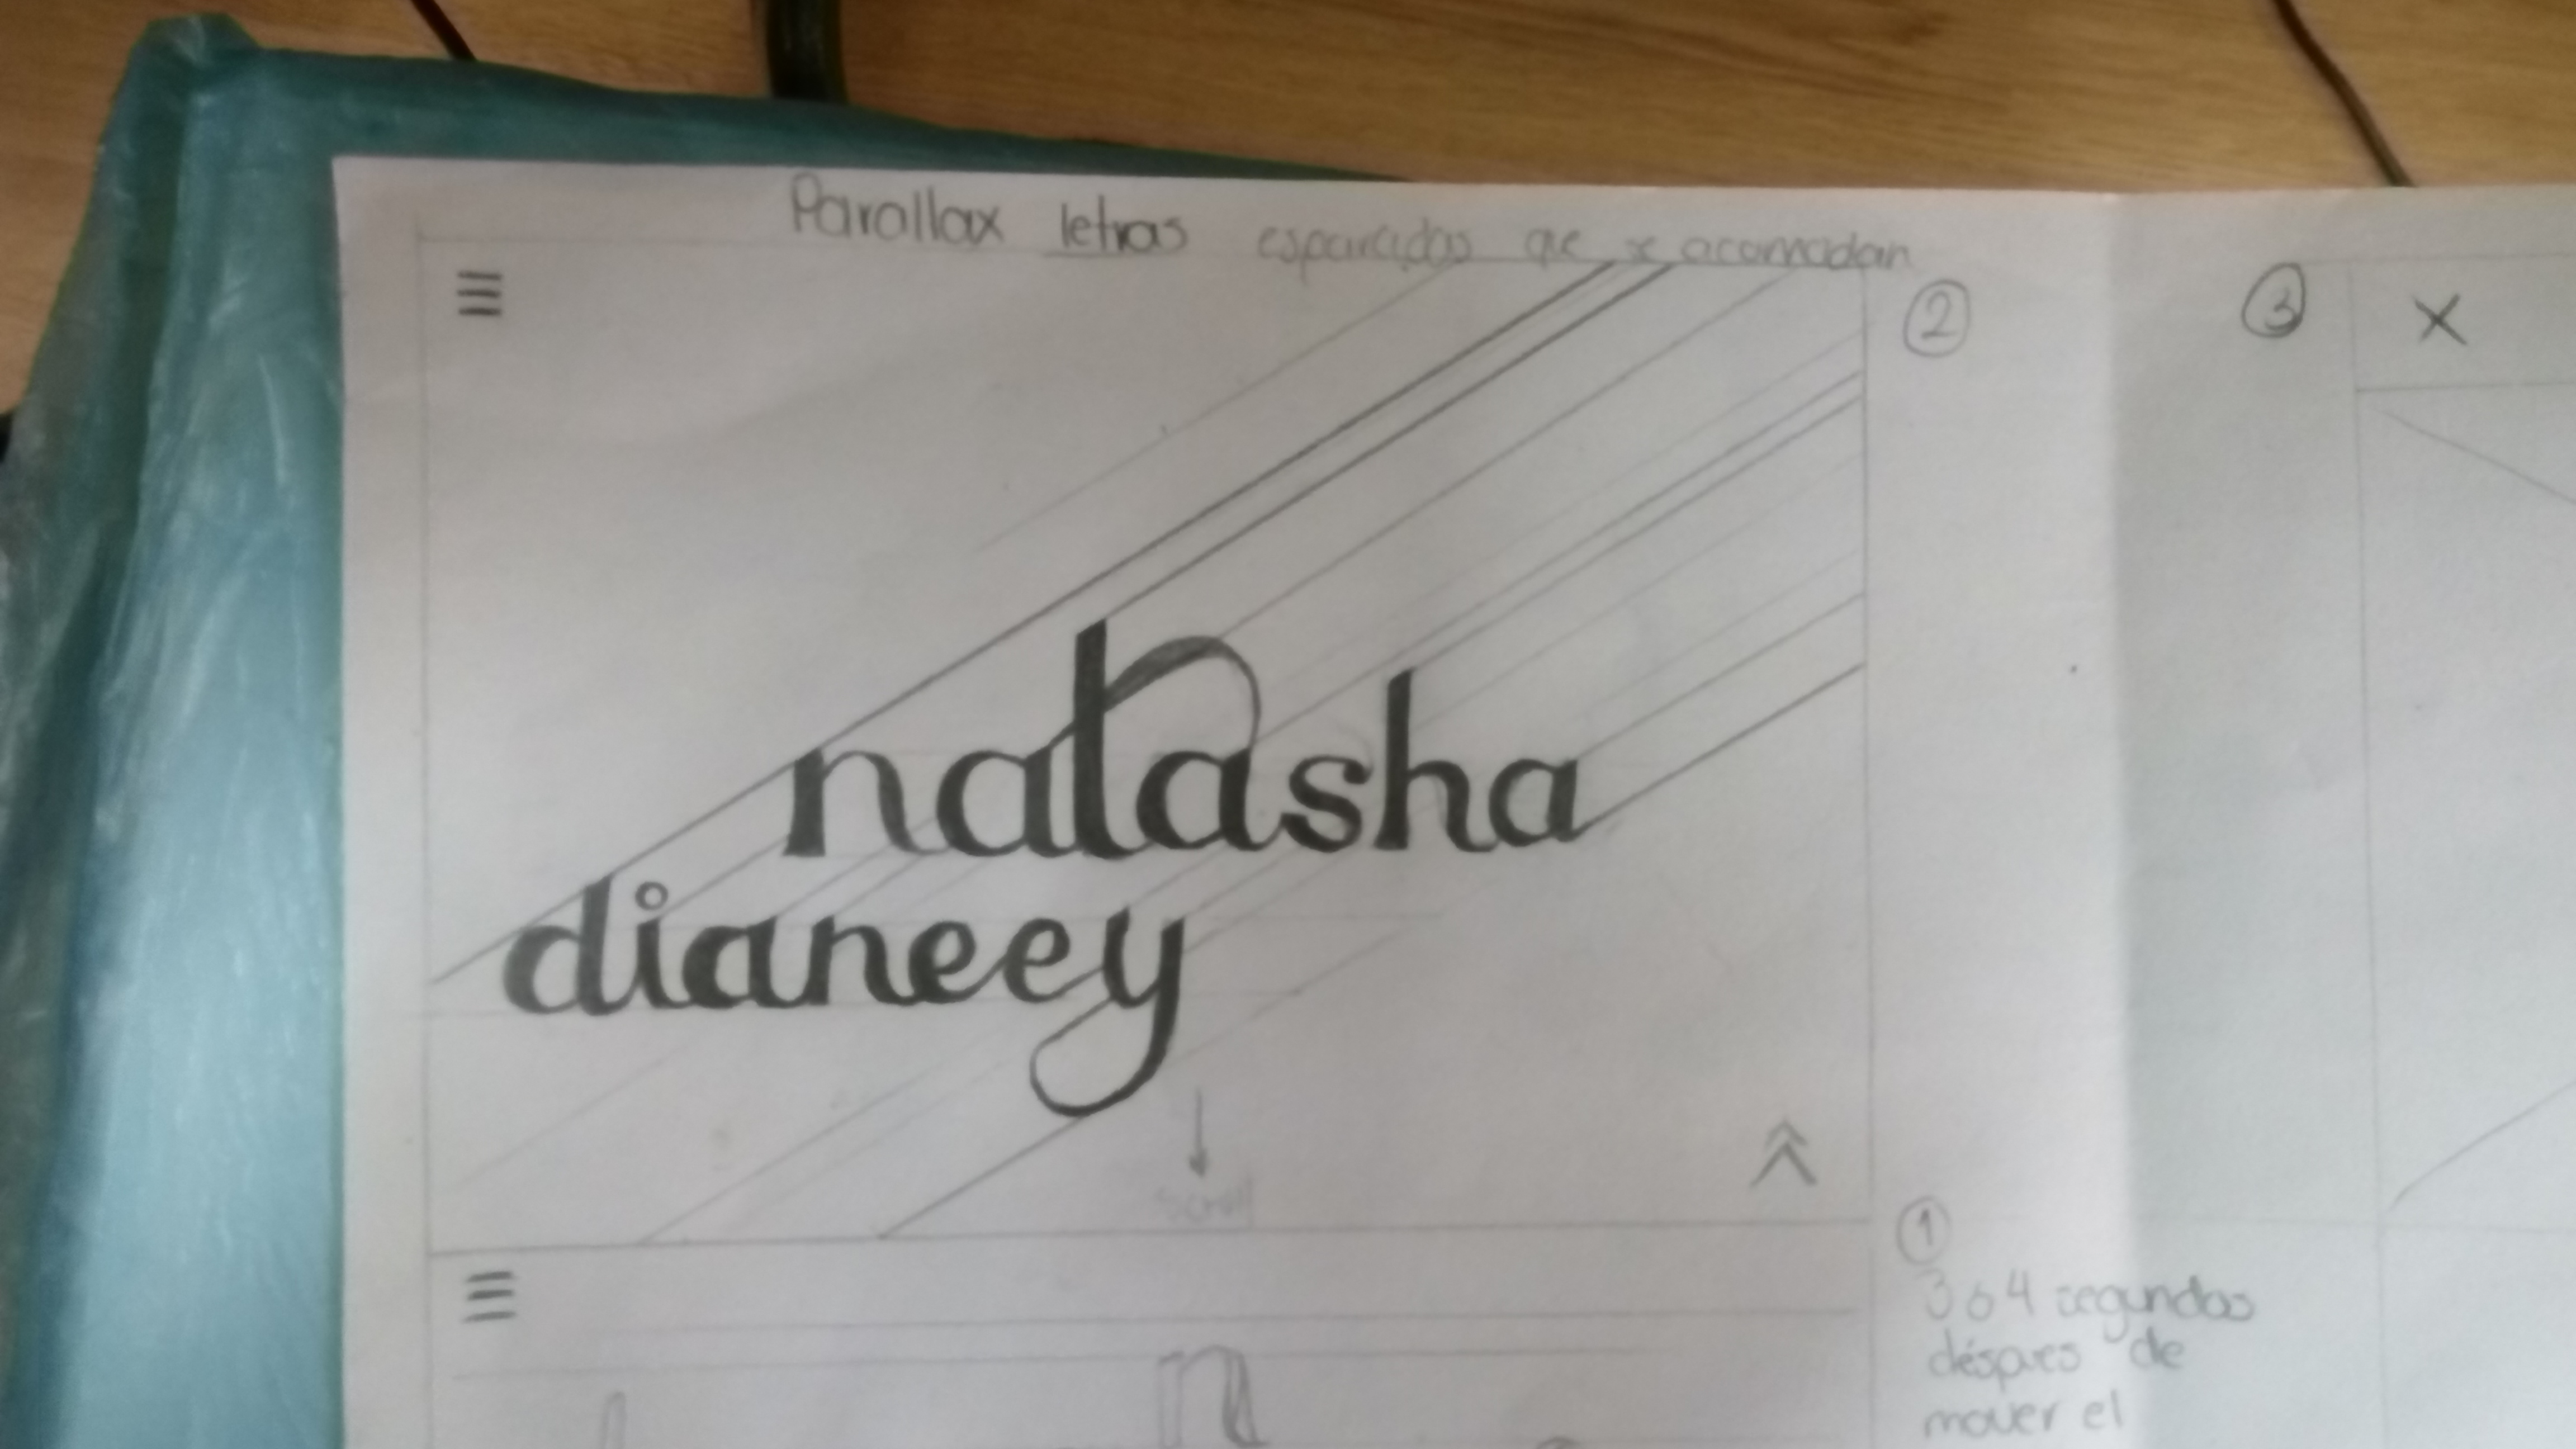 Parallax letras esparcidas que se acomodan
2
3
X
natasha
dianeey
Scroll
1
3 ó 4 segundos
déspues de
mover el
n